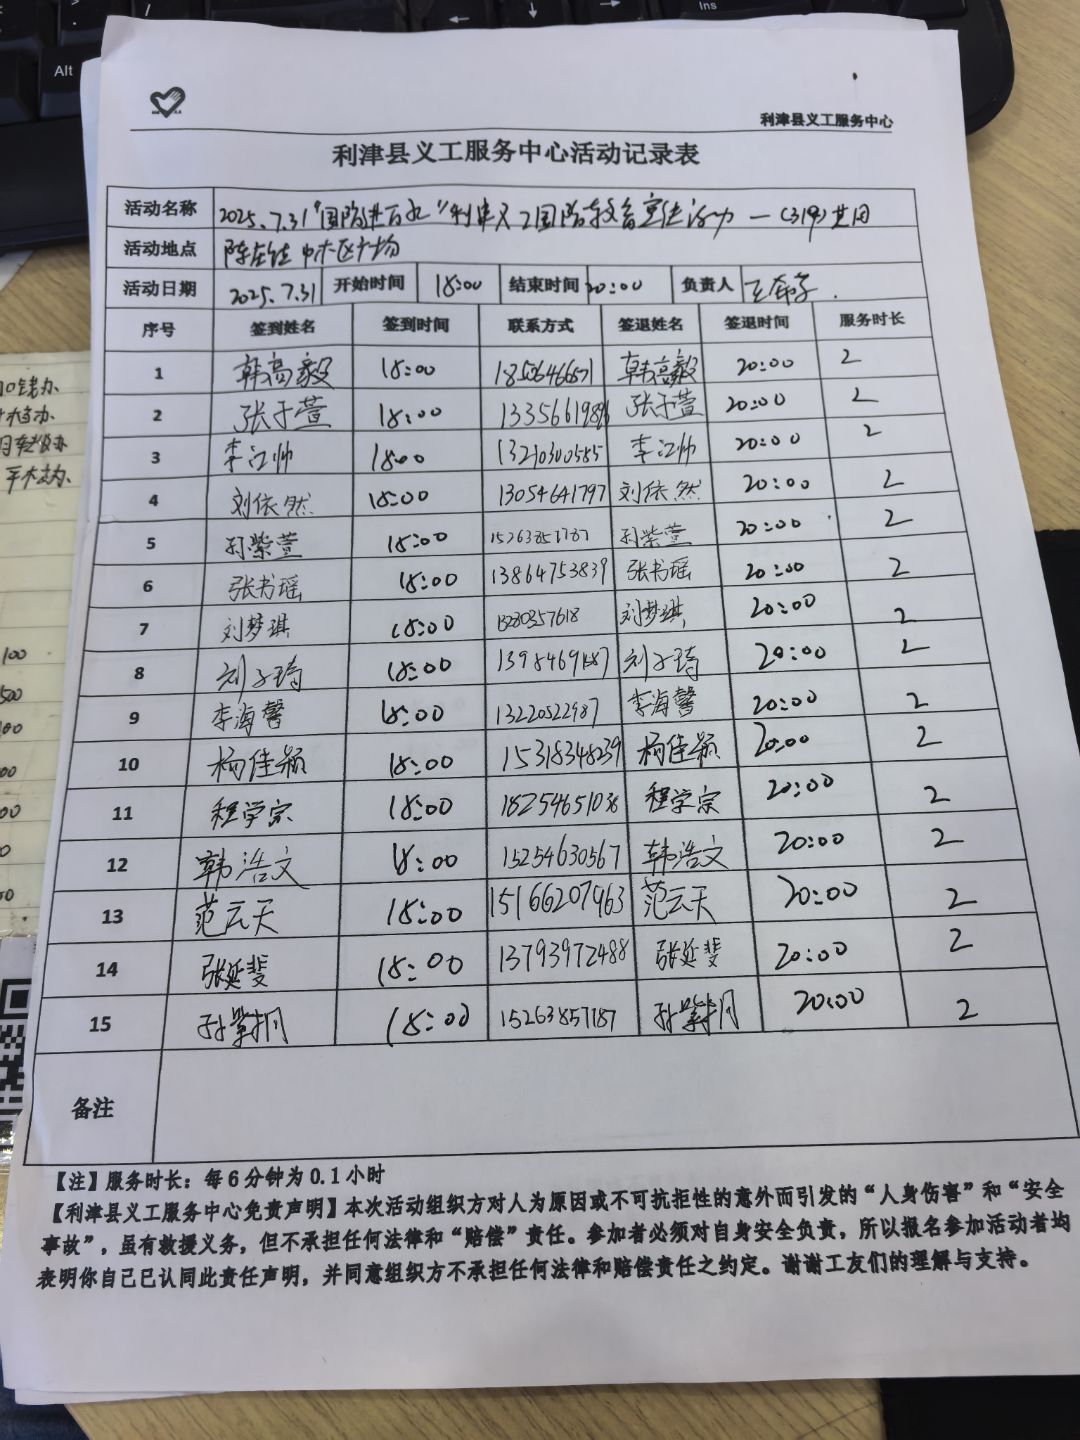 Alt
Ins
利津县义工服务中心
利津县义工服务中心活动记录表
活动名称 2025.7.31“国防进万家”利津义工国防教育宣传活动一(319)共同
活动地点 陈庄镇 中心区广场
活动日期 2025.7.31 开始时间 18:00 结束时间 20:00 负责人
序号 签到姓名 签到时间 联系方式 签退姓名 签退时间 服务时长
1 韩高毅 18:00 韩高毅 20:00 2
2 张于萱 18:00 张于萱 20:00 2
3 李江帅 18:00 13210300585 李江帅 20:00 2
4 刘依然 18:00 13054641797 刘依然 20:00 2
5 孙紫萱 18:00 15263857787 孙紫萱 20:00 2
6 张书瑶 18:00 13864753839 张书瑶 20:00 2
7 刘梦琪 18:00 刘梦琪 20:00 2
8 刘子琦 18:00 刘子琦 20:00 2
9 李海馨 18:00 13220522987 李海馨 20:00 2
10 杨佳颖 18:00 15318348239 杨佳颖 20:00 2
11 程学宗 18:00 18254651036 程学宗 20:00 2
12 韩浩文 18:00 15254630567 韩浩文 20:00 2
13 范云天 18:00 15166207963 范云天 20:00 2
14 张延斐 18:00 13793972488 张延斐 20:00 2
15 孙紫桐 18:00 15263857787 孙紫桐 20:00 2
备注
【注】服务时长：每6分钟为0.1小时
【利津县义工服务中心免责声明】本次活动组织方对人为原因或不可抗拒性的意外而引发的“人身伤害”和“安全
事故”，虽有救援义务，但不承担任何法律和“赔偿”责任。参加者必须对自身安全负责，所以报名参加活动者均
表明你自己已认同此责任声明，并同意组织方不承担任何法律和赔偿责任之约定。谢谢工友们的理解与支持。